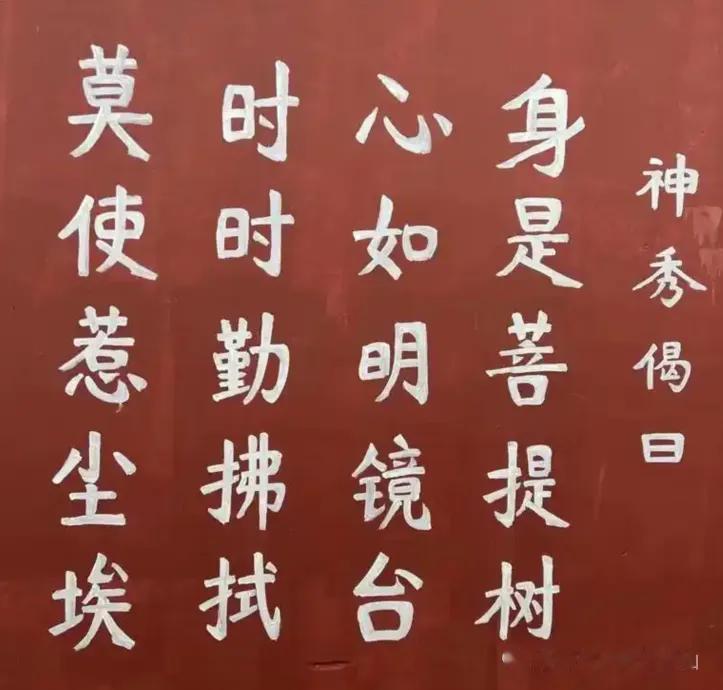 神秀偈曰
身是菩提树
心如明镜台
时时勤拂拭
莫使惹尘埃